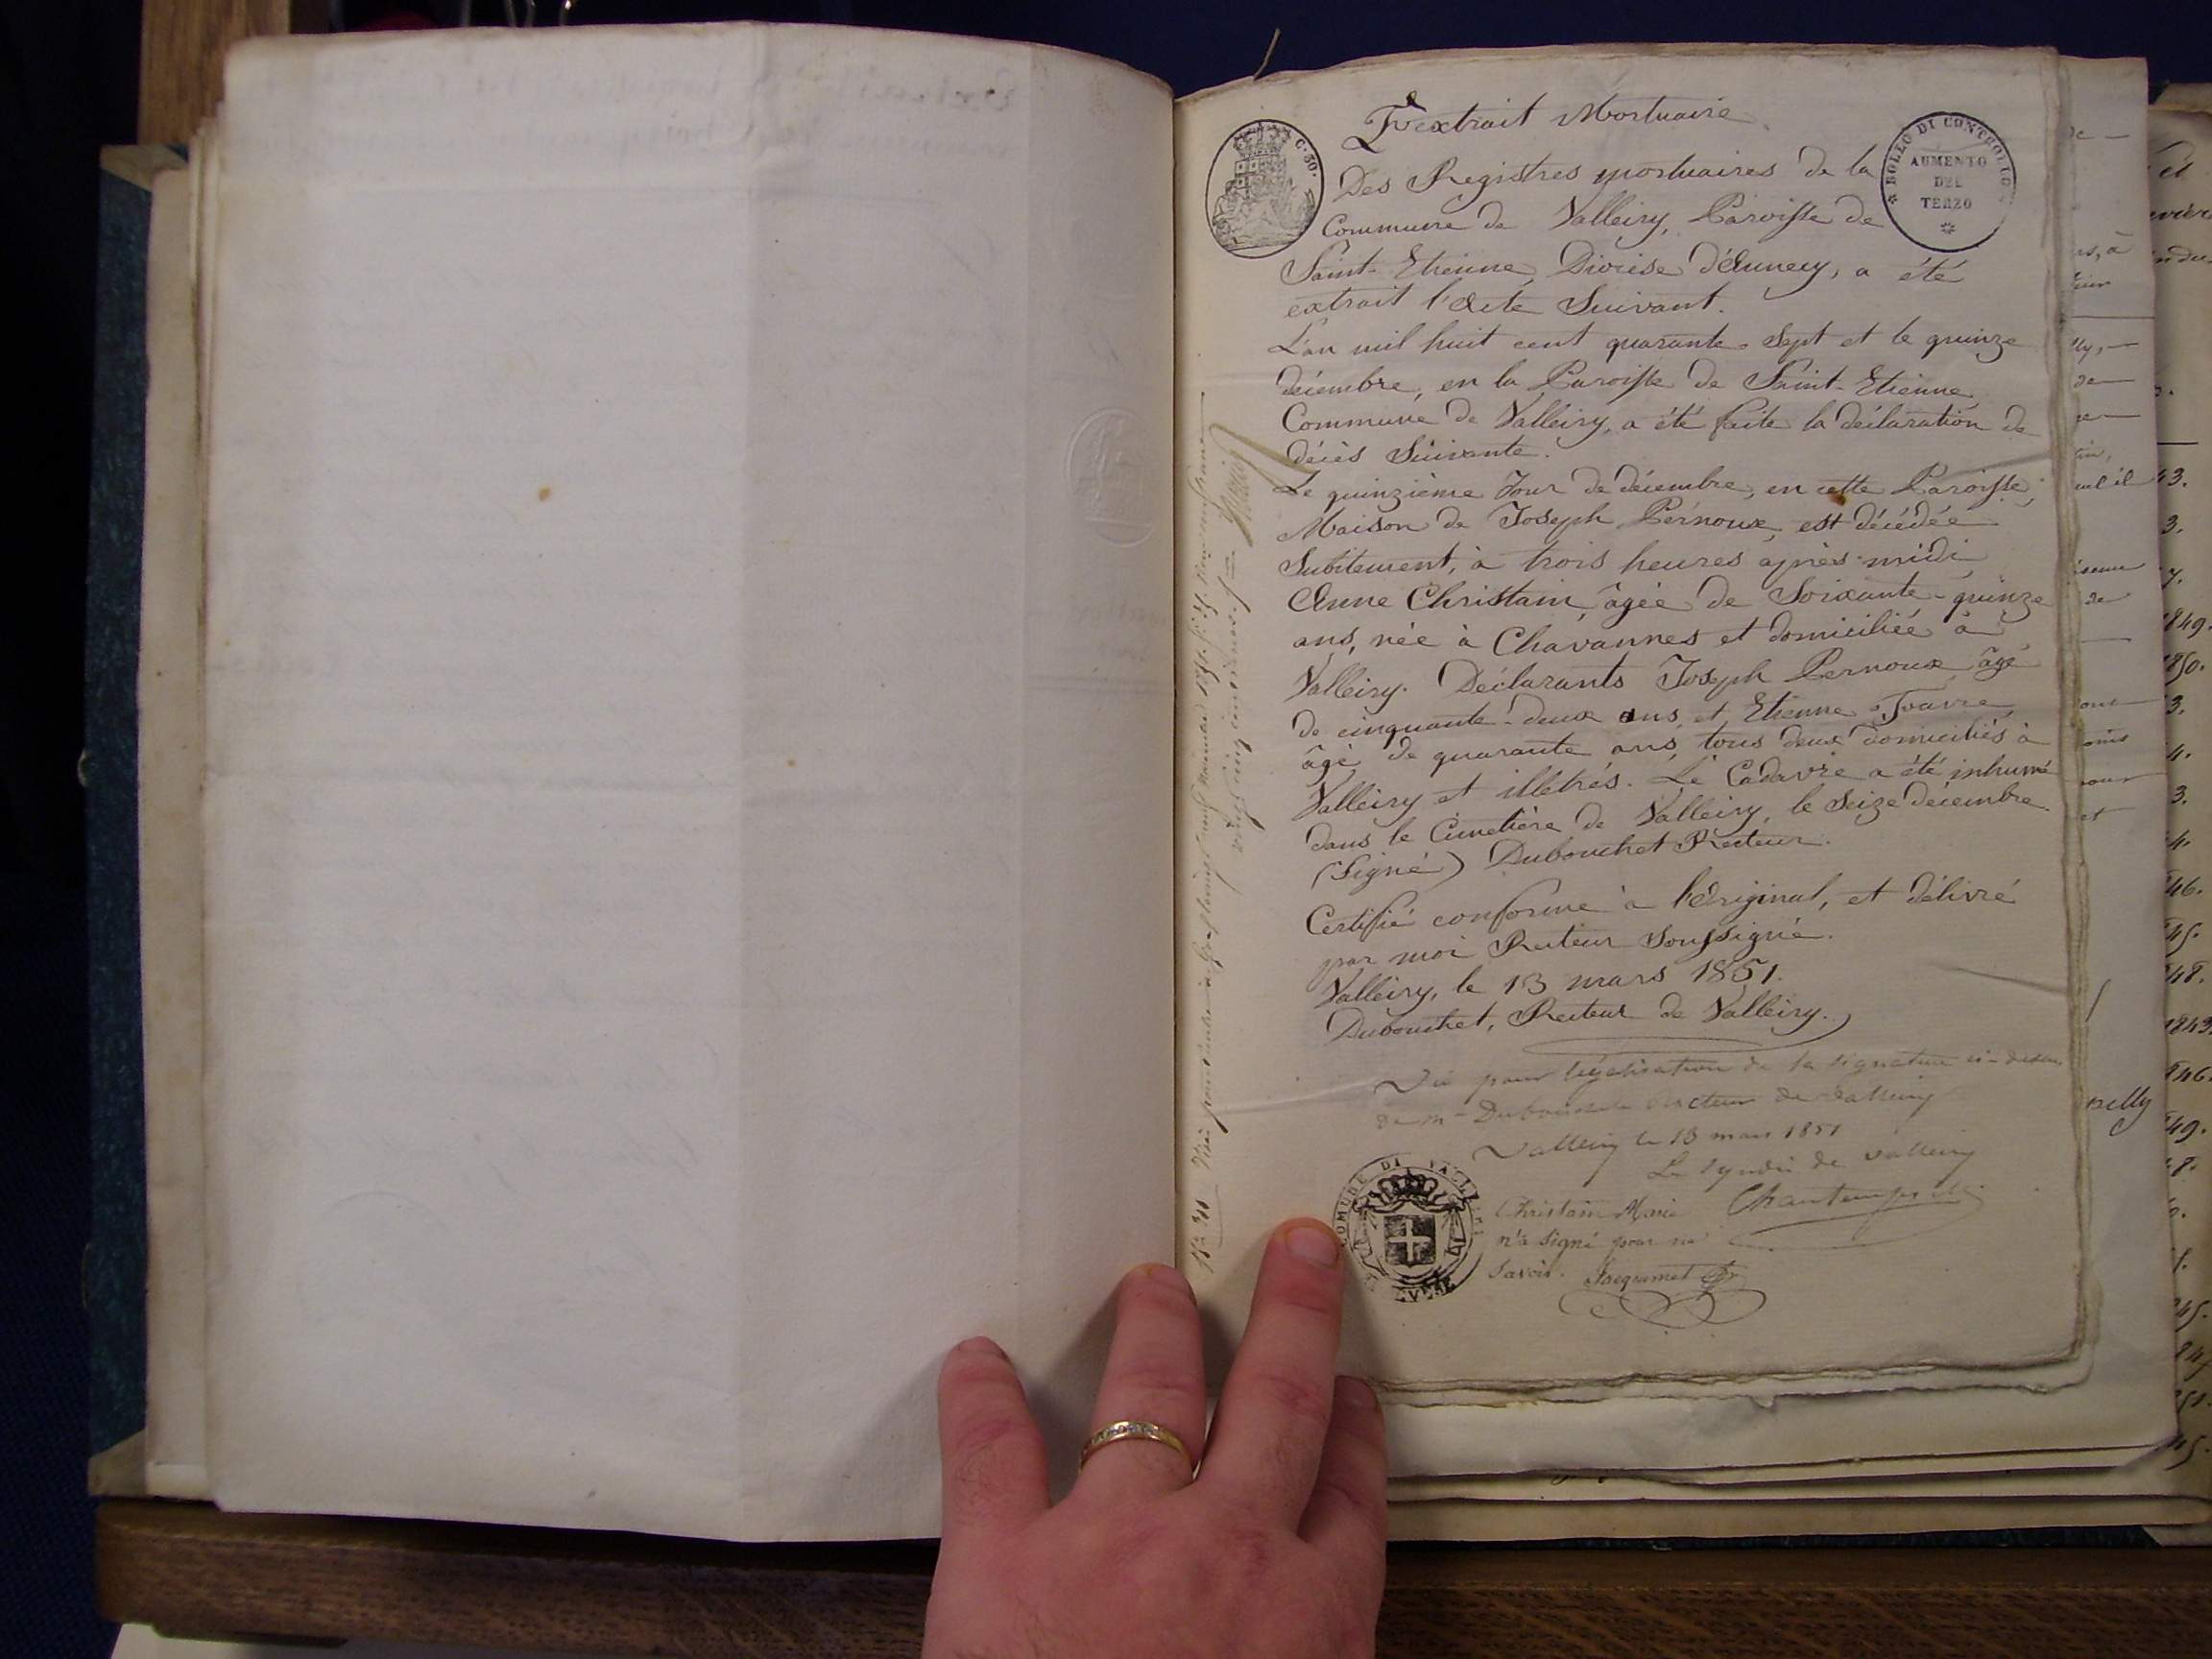 Extrait Mortuaire
C. 50.
BOLLO DI CONTROLLO
AUMENTO
DEL
TERZO
Des Registres mortuaires de la
Commune de Valleiry, Paroisse de
Saint-Etienne, Diocèse d'Annecy, a été
extrait l'acte Suivant.
L'an mil huit cent quarante-Sept et le quinze
décembre, en la Paroisse de Saint-Etienne,
Commune de Valleiry, a été faite la déclaration de
décès Suivante.
Le quinzième Jour de décembre, en cette Paroisse,
Maison de Joseph Pernoux, est décédée
Subitement, à trois heures après-midi
Anne Christain, âgée de Soixante-quinze
ans, née à Chavannes et domiciliée à
Valleiry. Déclarants Joseph Pernoux âgé
de cinquante-deux ans, et Etienne Favre,
âgé de quarante ans, tous deux domiciliés à
Valleiry et illetrés. Le Cadavre a été inhumé
dans le Cimetière de Valleiry, le Seize décembre.
(Signé) Dubouchet Recteur.
Certifié conforme à l'Original, et délivré
par moi Recteur Soussigné.
Valleiry, le 13 mars 1851.
Dubouchet, Recteur de Valleiry.
Vu pour légalisation de la signature ci-dessus
de mr Dubouchet Recteur de Valleiry
Valleiry le 13 mars 1851
Le Syndic de Valleiry
Chautemps
Christain Marie
n'a signé pour ne
Savoir.
COMUNE DI VALLEIRI